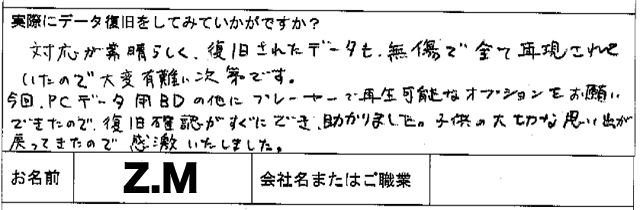 実際にデータ復旧をしてみていかがですか？
対応が素晴らしく、復旧されたデータも、無傷で全て再現されて
いたので大変有難い次第です。
今回、PCデータ用BDの他にプレーヤーで再生可能なオプションをお願い
できたので、復旧確認がすぐにでき、助かりました。子供の大切な思い出が
戻ってきたので感激いたしました。
お名前 Z.M 会社名またはご職業